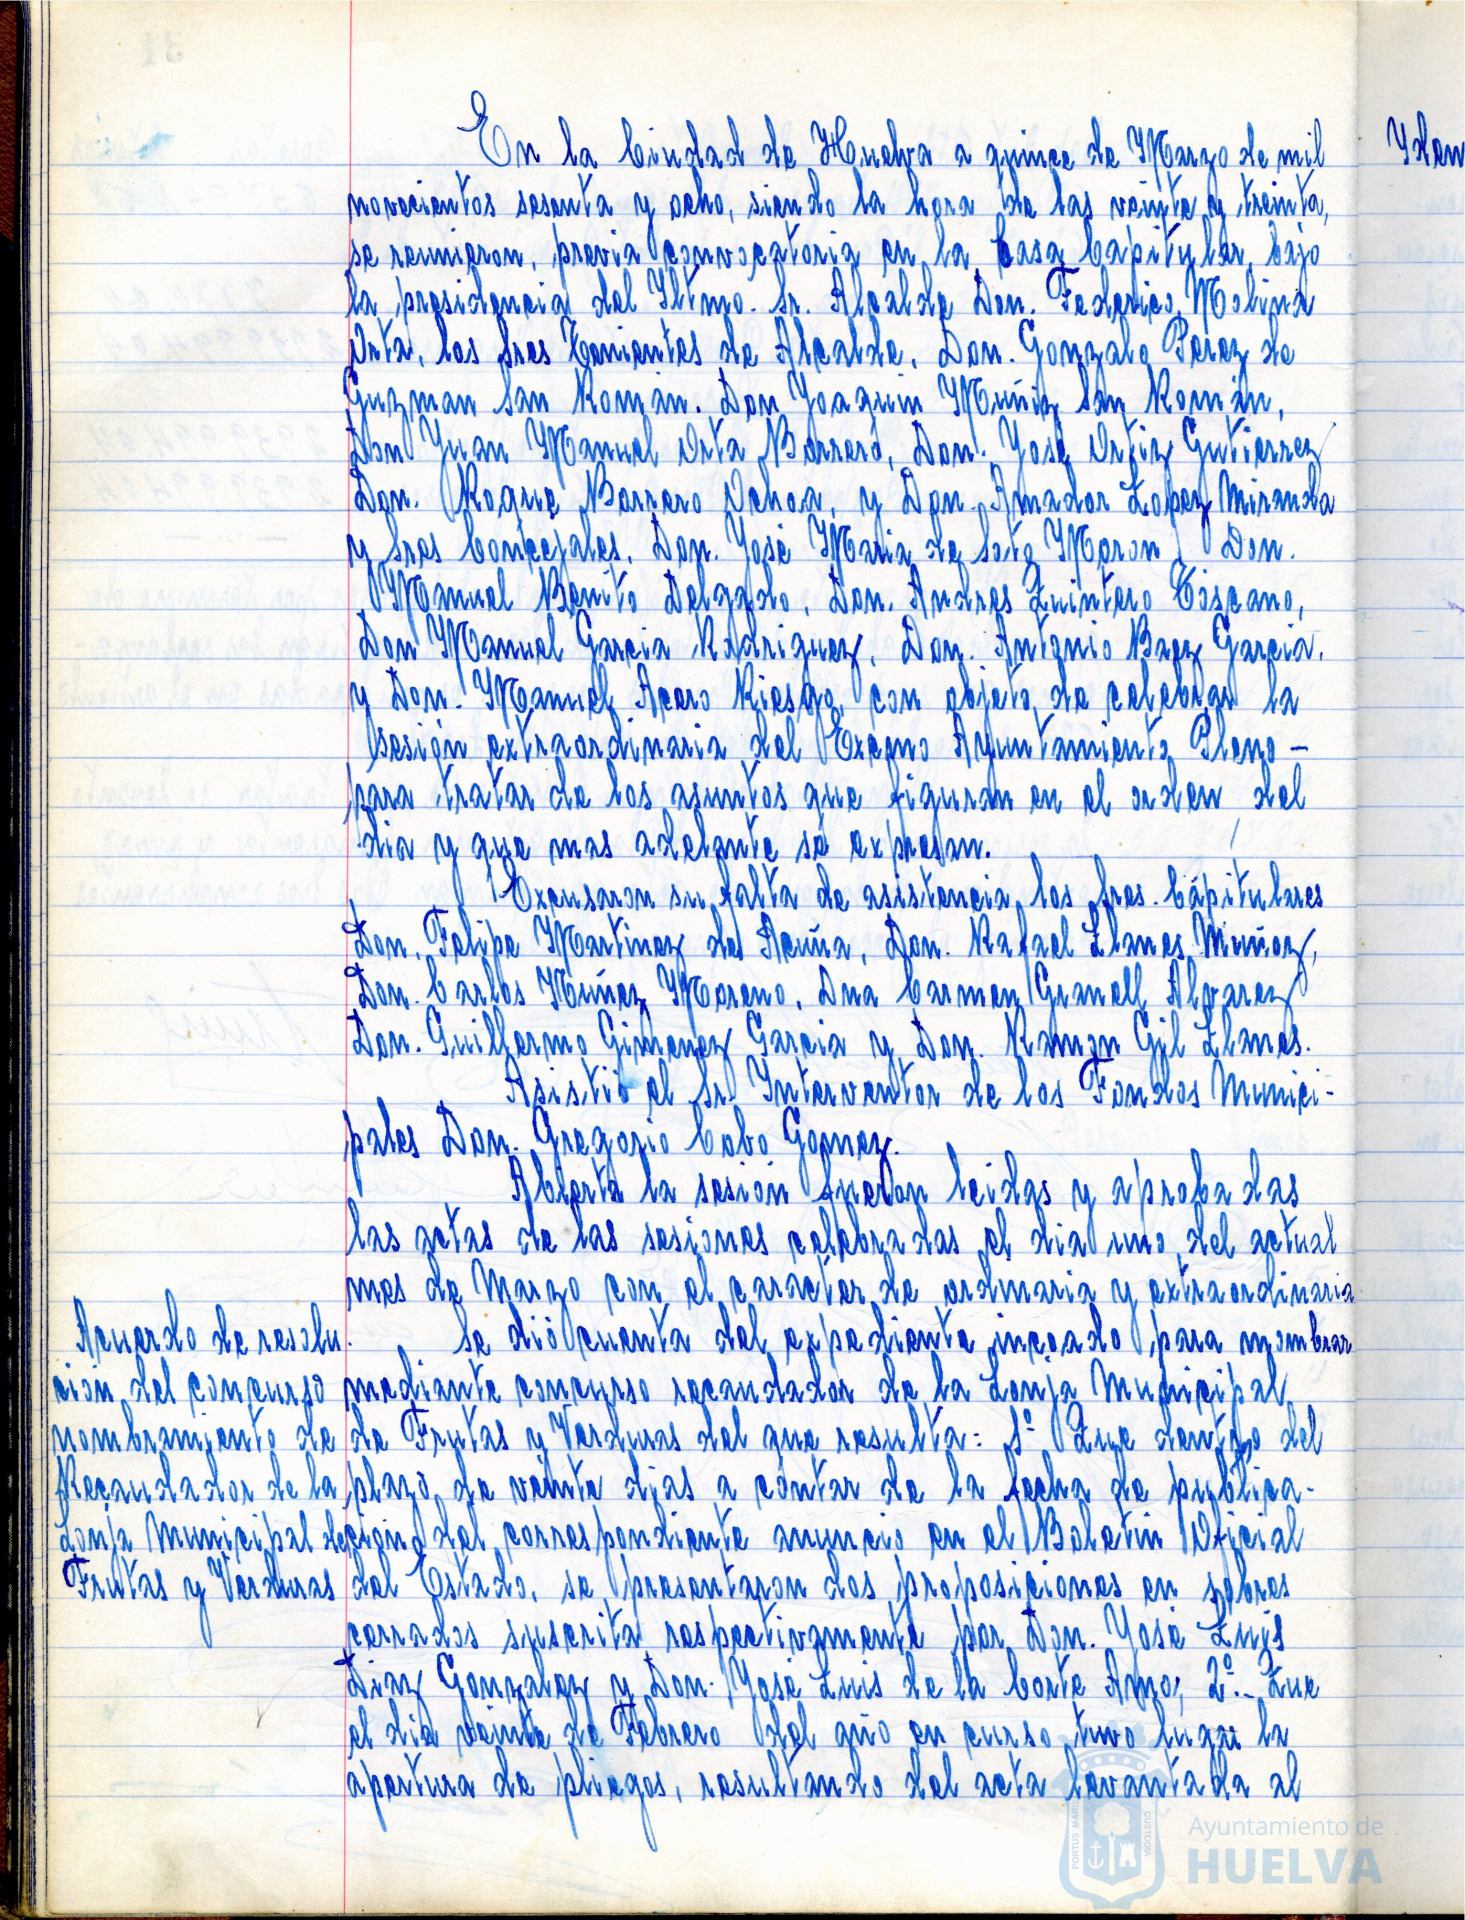 En la Ciudad de Huelva a quince de Marzo de mil
novecientos sesenta y ocho, siendo la hora de las veinte y treinta,
se reunieron, previa convocatoria en la Casa Capitular, bajo
la presidencia del Iltmo. Sr. Alcalde Don. Federico Molina
Orta, los Sres Tenientes de Alcalde, Don. Gonzalo Perez de
Guzman San Román. Don Joaquin Muñiz San Román,
Don Juan Manuel Orta Borrero, Don. José Ortiz Gutierrez
Don. Roque Borrero Ochoa, y Don. Amador Lopez Miranda
y Sres Concejales, Don. José Maria de Soto Moron, Don.
Manuel Benito Delgado, Don. Andres Quintero Toscano,
Don Manuel Garcia Rodriguez, Don. Antonio Baez Garcia,
y Don. Manuel Acero Riesgo, con objeto de celebrar la
sesión extraordinaria del Excmo Ayuntamiento Pleno -
para tratar de los asuntos que figuran en el orden del
dia y que mas adelante se expresan.
Excusaron su falta de asistencia los Sres. Cápitulares
Don. Felipe Martinez de Acuña, Don. Rafael Llanes Muñoz,
Don. Carlos Núñez Moreno, Dna Carmen Granell Alvarez
Don. Guillermo Gimenez Garcia y Don. Ramon Gil Llanes.
Asistió el Sr Interventor de los Fondos Munici-
pales Don. Gregorio Cabo Gomez.
Abierta la sesión fueron leidas y aprobadas
las actas de las sesiones celebradas el dia uno del actual
mes de Marzo con el carácter de ordinaria y extraordinaria
Acuerdo de resolu-
ción del concurso
nombramiento de
Recaudador de la
Lonja Municipal de
Frutas y Verduras
Se dió cuenta del expediente incoado para nombrar
mediante concurso recaudador de la Lonja Municipal
de Frutas y Verduras del que resulta: 1º Que dentro del
plazo de veinte dias a contar de la fecha de publica-
ción del correspondiente anuncio en el Boletin Oficial
del Estado, se presentaron dos proposiciones en sobres
cerrados suscrita respectivamente por Don. José Luis
Diaz Gonzalez y Don. José Luis de la Corte Amo; 2º.- Que
el dia veinte de Febrero del año en curso tuvo lugar la
apertura de pliegos, resultando del acta levantada al
Idem
Ayuntamiento de
HUELVA